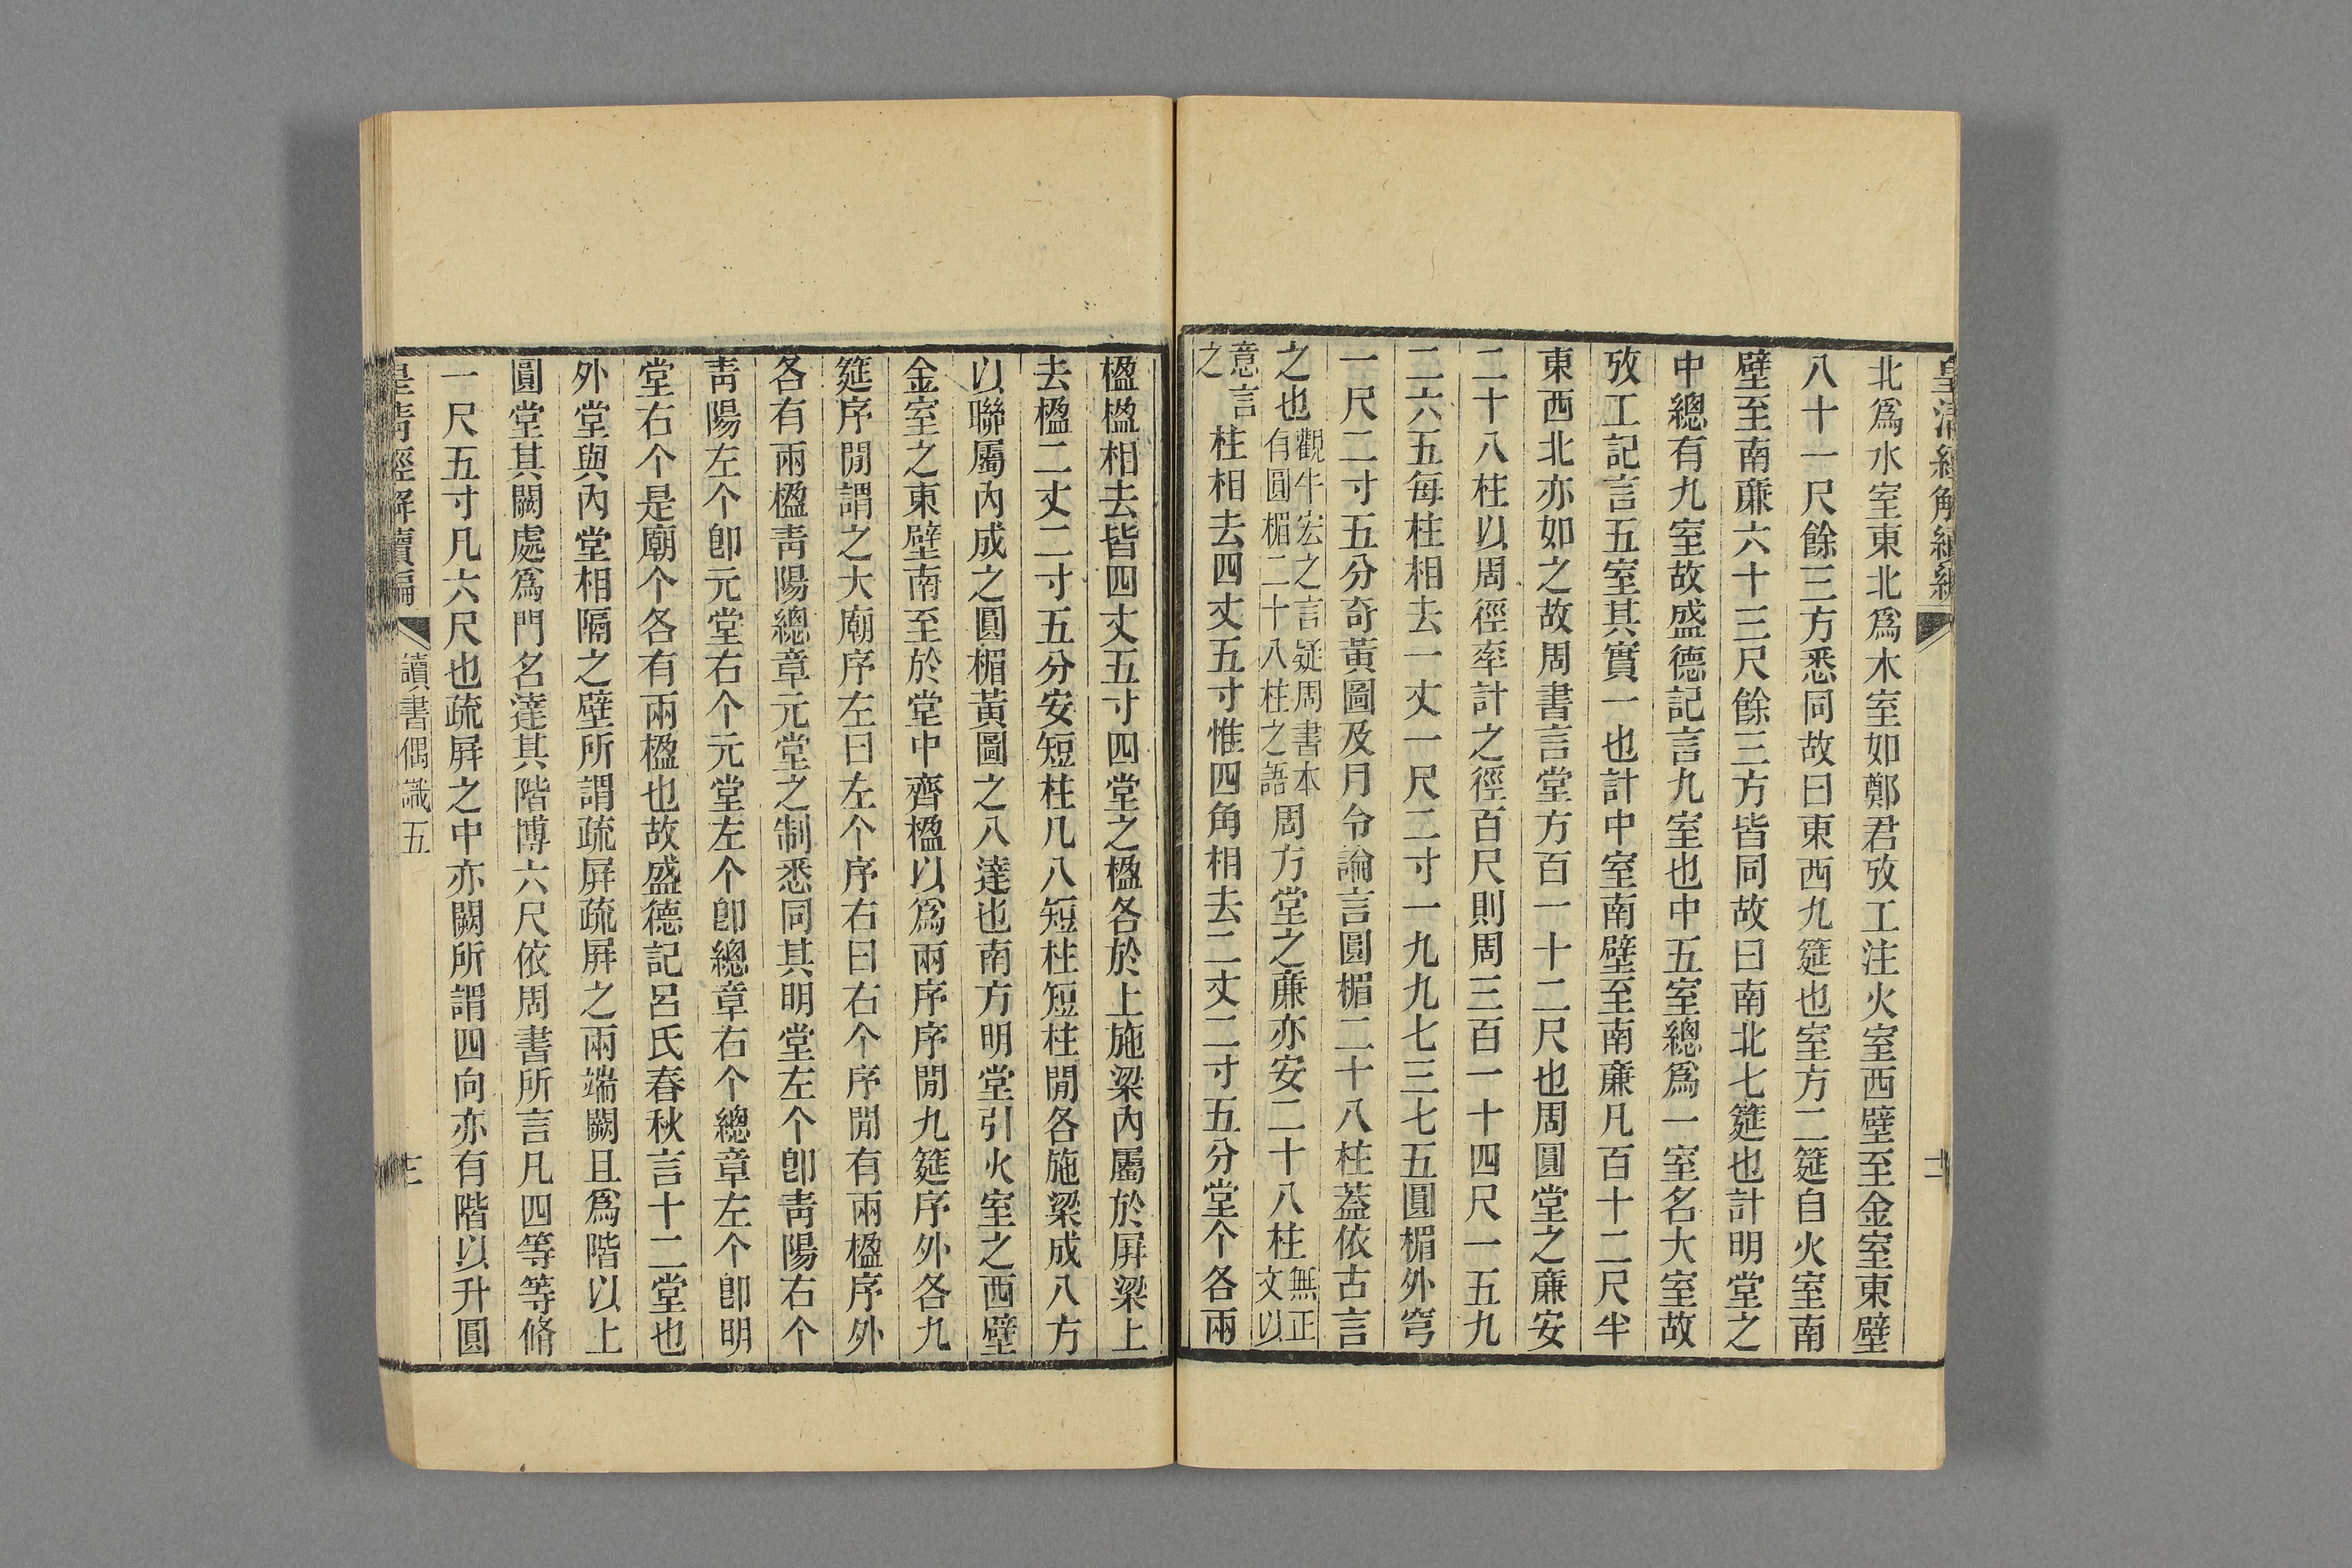 北爲水室東北爲木室如鄭君攷工注火室西壁至金室東壁
八十一尺餘三方悉同故曰東西九筵也室方二筵自火室南
壁至南廉六十三尺餘三方皆同故曰南北七筵也計明堂之
中總有九室故盛德記言九室也中五室總爲一室名大室故
攷工記言五室其實一也計中室南壁至南廉凡百十二尺半
東西北亦如之故周書言堂方百一十二尺也周圓堂之廉安
二十八柱以周徑率計之徑百尺則周三百一十四尺一五九
二六五每柱相去一丈一尺二寸一九九七三七五圓楣外穹
一尺二寸五分奇黃圖及月令論言圓楣二十八柱蓋依古言
之也觀牛宏之言疑周書本有圓楣二十八柱之語周方堂之廉亦安二十八柱無正文以
意言之柱相去四丈五寸惟四角相去二丈二寸五分堂个各兩
楹楹相去皆四丈五寸四堂之楹各於上施梁內屬於屏梁上
去楹二丈二寸五分安短柱凡八短柱短柱閒各施梁成八方
以聯屬內成之圓楣黃圖之八達也南方明堂引火室之西壁
金室之東壁南至於堂中齊楹以爲兩序序閒九筵序外各九
筵序閒謂之大廟序左曰左个序右曰右个序閒有兩楹序外
各有兩楹靑陽總章元堂之制悉同其明堂左个卽靑陽右个
靑陽左个卽元堂右个元堂左个卽總章右个總章左个卽明
堂右个是廟个各有兩楹也故盛德記呂氏春秋言十二堂也
外堂與內堂相隔之壁所謂疏屏疏屏之兩端闕且爲階以上
圓堂其闕處爲門名達其階博六尺依周書所言凡四等等脩
一尺五寸凡六尺也疏屏之中亦闕所謂四向亦有階以升圓
皇清經解續編
讀書偶識五